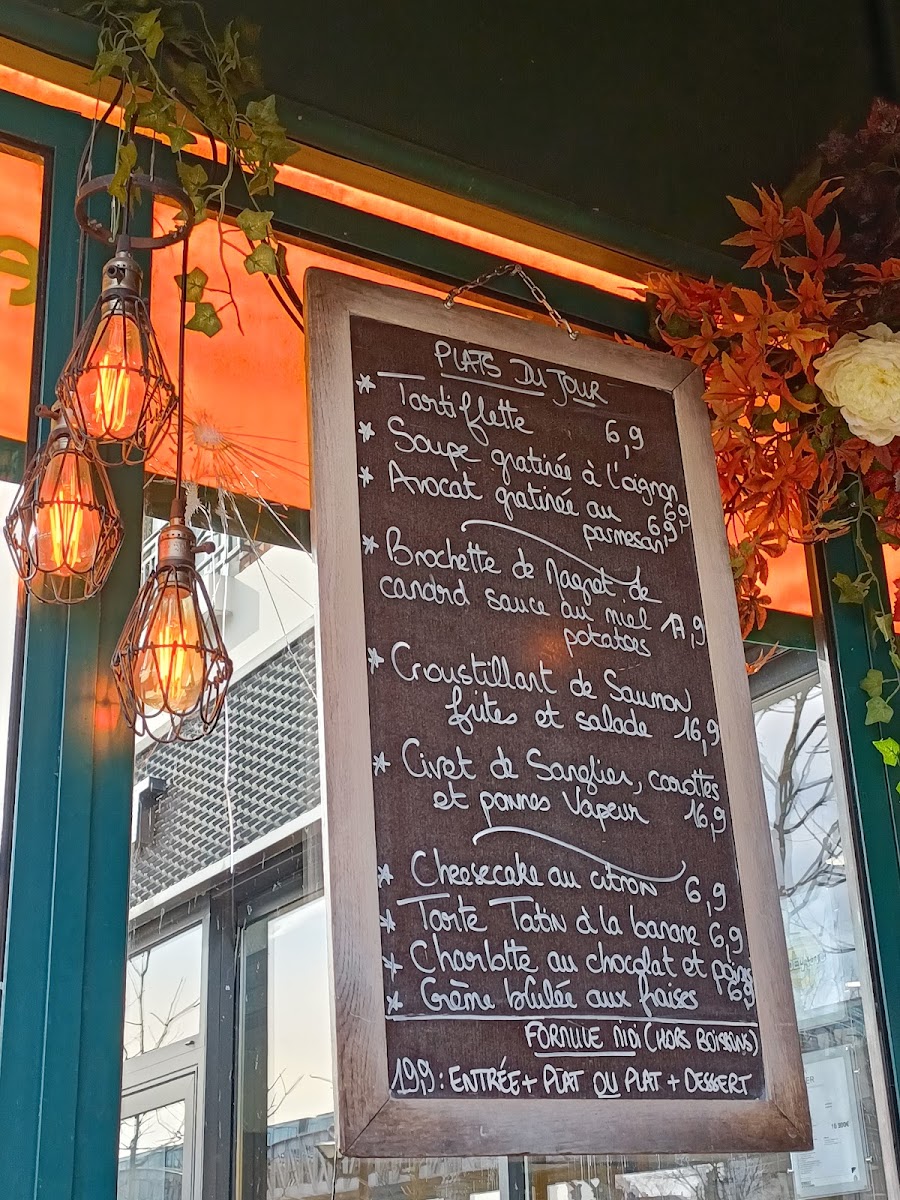 PLATS DU JOUR
* Tartiflette 6,9
* Soupe gratinée à l'oignon 6,9
* Avocat gratinée au
parmesan 6,9
* Brochette de Magret de
canard sauce au miel
potatoes 17,9
* Croustillant de Saumon
frites et salade 16,9
* Civet de Sanglier, carottes
et pommes Vapeur 16,9
* Cheesecake au citron 6,9
* Tarte Tatin à la banane 6,9
* Charlotte au chocolat et poires
* Crème brûlée aux fraises 6,9
FORMULE MIDI (HORS BOISSONS)
19,9 : ENTRÉE + PLAT OU PLAT + DESSERT